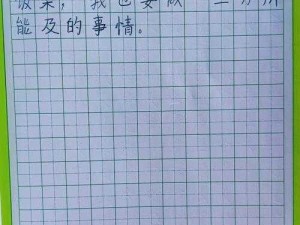 饭菜，我也要做一些力所
能及的事情。